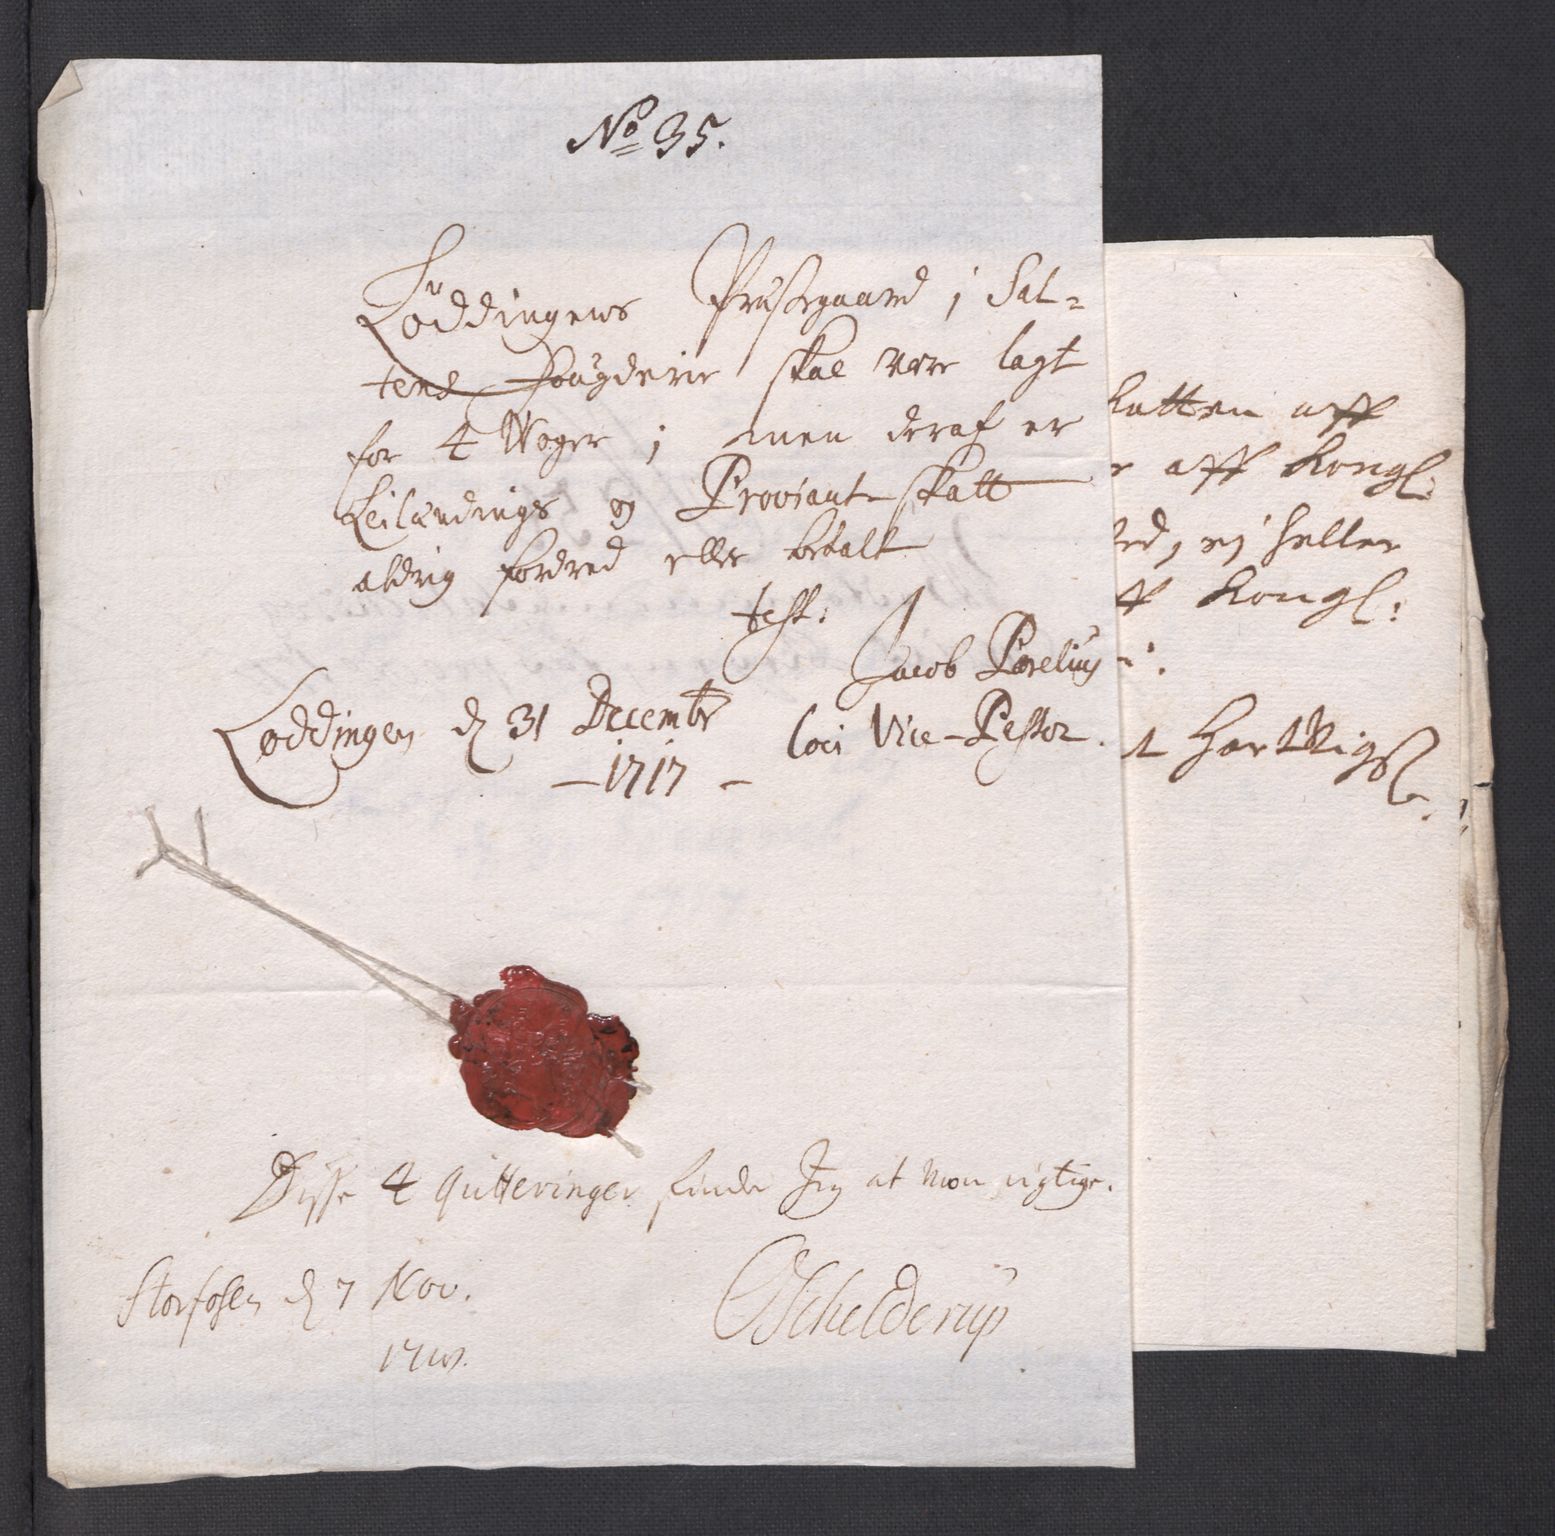 No 35.
Løddingens Præstegaard i Sal-
tens Fougderie skal være lagt
for 4 Woger; men deraf er
Leilændings og Proviant-skatt
aldrig fordred eller betalt
test:
Jacob Parelius
Loddingen d 31 Decembr
loci Vice-Pastor.
- 1717 -
Disse 4 quitteringer finder Jeg at vere rigtige.
Storfosen d 7 Nov.
OSchelderup
katten aff
r aff Kongl:
ed, ej heller
ff Kongl:
t HartVigs